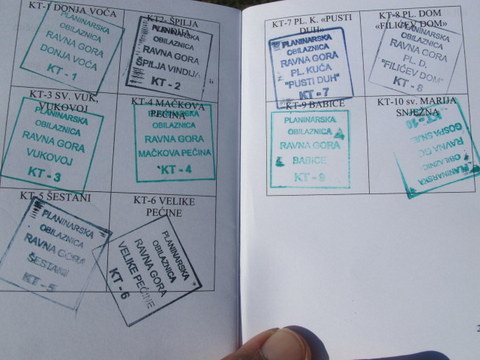 KT-1 DONJA VOĆA
PLANINARSKA
OBILAZNICA
RAVNA GORA
DONJA VOĆA
KT - 1
KT2- ŠPILJA
PLANINARSKA
OBILAZNICA
RAVNA GORA
ŠPILJA VINDIJA
KT - 2
KT-3 SV. VUK,
VUKOVOJ
PLANINARSKA
OBILAZNICA
RAVNA GORA
VUKOVOJ
KT - 3
KT-4 MAČKOVA
PEĆINA
PLANINARSKA
OBILAZNICA
RAVNA GORA
MAČKOVA PEĆINA
KT - 4
KT-5 ŠESTANI
PLANINARSKA
OBILAZNICA
RAVNA GORA
ŠESTANI
KT - 5
KT-6 VELIKE
PEĆINE
PLANINARSKA
OBILAZNICA
RAVNA GORA
VELIKE PEĆINE
KT - 6
KT-7 PL. K. «PUSTI
DUH»
PLANINARSKA
OBILAZNICA
RAVNA GORA
PL. KUĆA
"PUSTI DUH"
KT - 7
KT-8 PL. DOM
«FILIĆEV DOM»
PLANINARSKA
OBILAZNICA
RAVNA GORA
PL. D.
"FILIĆEV DOM"
KT - 8
KT-9 BABICE
PLANINARSKA
OBILAZNICA
RAVNA GORA
BABICE
KT - 9
KT-10 sv. MARIJA
SNJEŽNA
PLANINARSKA
OBILAZNICA
RAVNA GORA
KT - 10